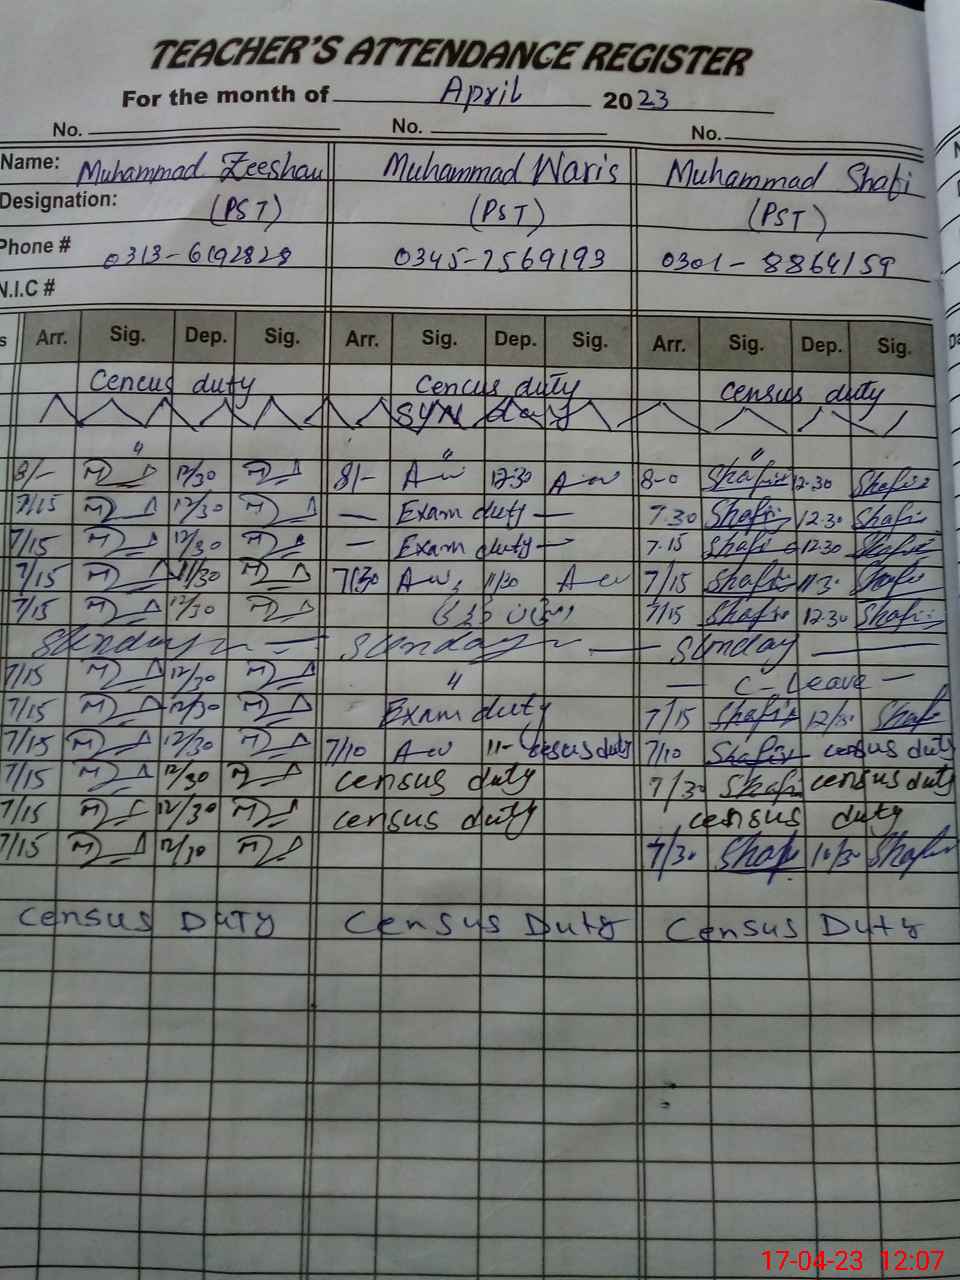 TEACHER'S ATTENDANCE REGISTER
For the month of April 2023
No. No. No.
Name: Muhammad Zeeshan Muhammad Waris Muhammad Shafi
Designation: (PST) (PST) (PST)
Phone # 0313-6192828 0345-7569193 0301-8864159
N.I.C #
s Arr. Sig. Dep. Sig. Arr. Sig. Dep. Sig. Arr. Sig. Dep. Sig.
Cencus duty Cencus duty census duty
SYN day
" " "
8/- 12/30 8/- 12-30 8-0 Shafi 12.30 Shafi
7/15 12/30 — Exam duty — 7.30 Shafi 12.30 Shafi
7/15 12/30 — Exam duty — 7.15 Shafi 12.30 Shafi
7/15 11/30 7/30 11/30 7/15 Shafi 11.3 Shafi
7/15 12/30 7/15 Shafi 12.30 Shafi
Sunday — Sunday — Sunday —
7/15 12/30 " — C-Leave —
7/15 12/30 Exam duty 7/15 Shafi 12/30 Shafi
7/15 12/30 7/10 11- cesus duty 7/10 Shafi census duty
7/15 12/30 census duty 7/30 Shafi census duty
7/15 12/30 census duty census duty
7/15 12/30 7/30 Shafi 10/30 Shafi
Census DUTY Census Duty Census Duty
17-04-23 12:07